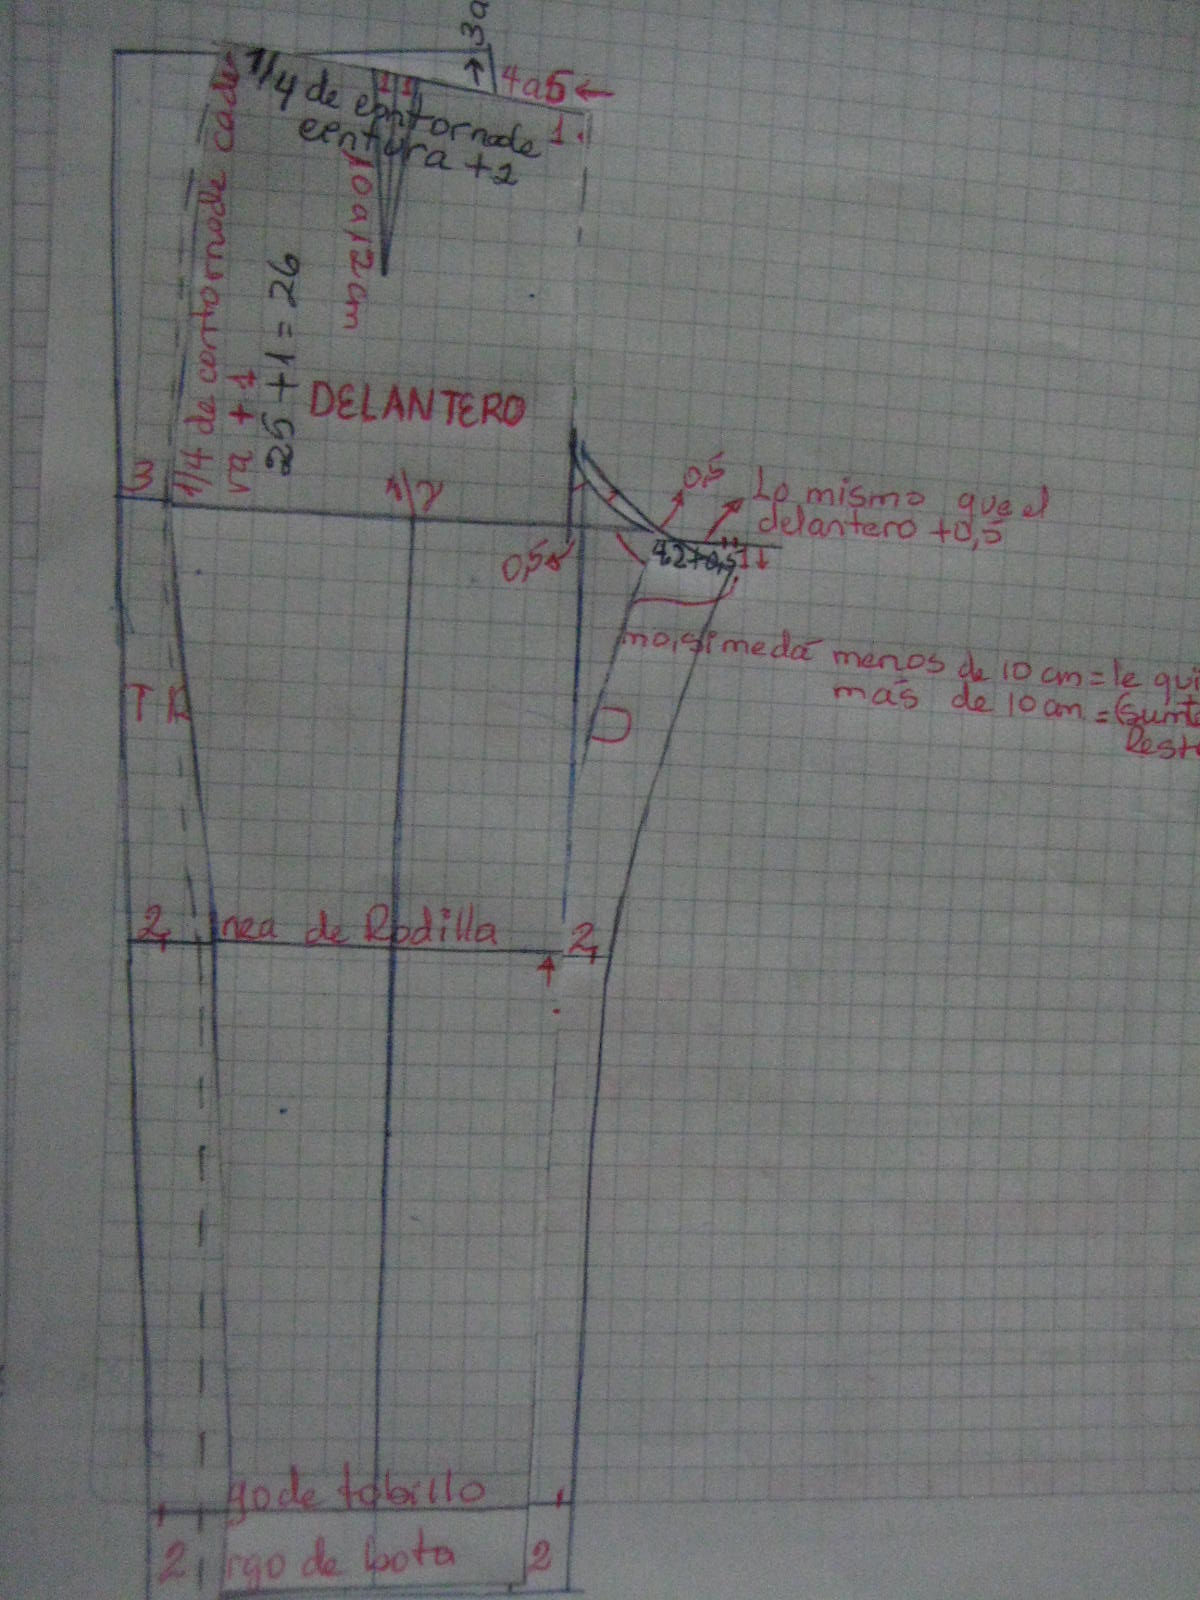 3a
4a5
1/4 de contorno de
centura +2
1 1
1.
10 a 12 cm
1/4 de contorno de cade
va + 1
25+1=26
DELANTERO
3
1/2
0,5
Lo mismo que el
delantero +0,5
0,5
4,2+0,5
1
mo, si me dá menos de 10 cm = le qui
más de 10 cm =
Rest
T R
D
2
nea de Rodilla
2
go de tobillo
2
rgo de bota
2